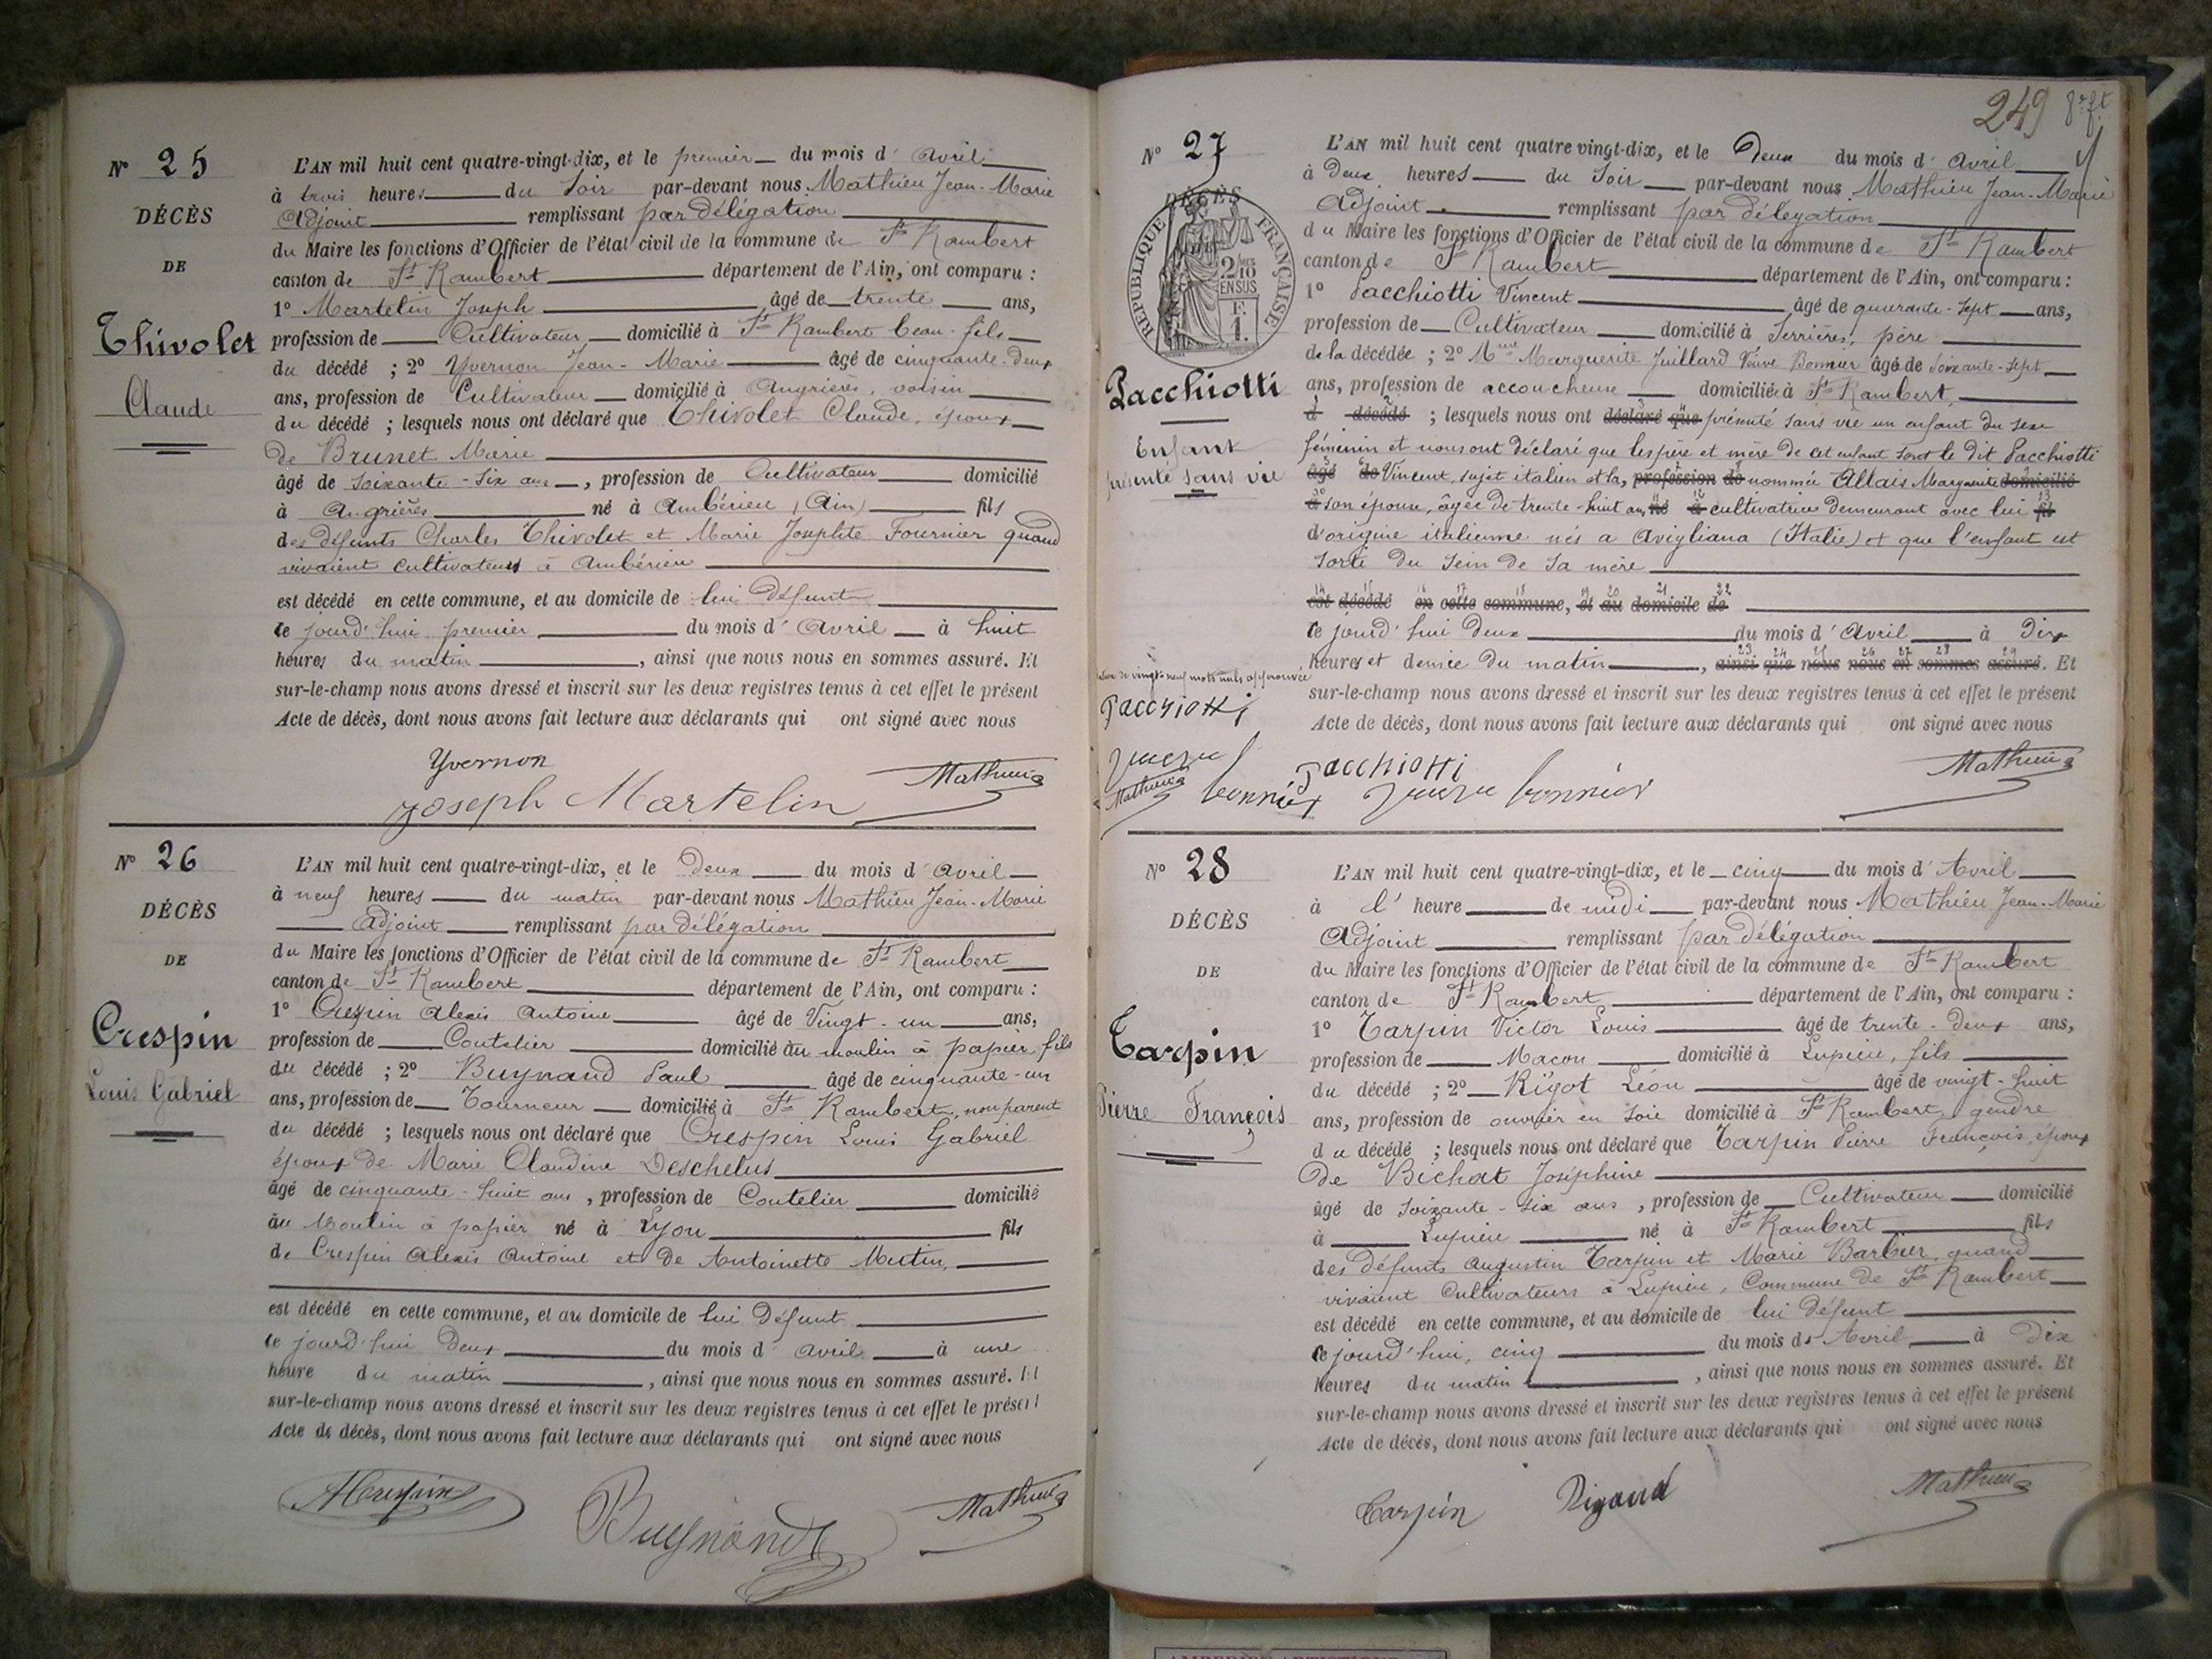 N° 25
DÉCÈS
DE
Thivolet
Claude
L'AN mil huit cent quatre-vingt-dix, et le premier du mois d' avril
à trois heures du soir par-devant nous Mathieu Jean-Marie
Adjoint remplissant par délégation
du Maire les fonctions d'Officier de l'état civil de la commune de St Rambert
canton de St Rambert département de l'Ain, ont comparu :
1° Martelin Joseph âgé de trente ans,
profession de Cultivateur domicilié à St Rambert beau-fils
du décédé ; 2° Yvernon Jean-Marie âgé de cinquante-deux
ans, profession de Cultivateur domicilié à Angrières, voisin
du décédé ; lesquels nous ont déclaré que Thivolet Claude, époux
de Brunet Marie
âgé de soixante-six ans, profession de Cultivateur domicilié
à Angrières né à Ambérieu (Ain) fils
des défunts Charles Thivolet et Marie Josephte Fournier quand
vivaient cultivateurs à Ambérieu
est décédé en cette commune, et au domicile de lui défunt
ce jourd'hui premier du mois d' avril à huit
heures du matin, ainsi que nous nous en sommes assuré. Et
sur-le-champ nous avons dressé et inscrit sur les deux registres tenus à cet effet le présent
Acte de décès, dont nous avons fait lecture aux déclarants qui ont signé avec nous
Yvernon
Joseph Martelin
Mathieu
N° 26
DÉCÈS
DE
Crespin
Louis Gabriel
L'AN mil huit cent quatre-vingt-dix, et le deux du mois d' avril
à neuf heures du matin par-devant nous Mathieu Jean-Marie
Adjoint remplissant par délégation
du Maire les fonctions d'Officier de l'état civil de la commune de St Rambert
canton de St Rambert département de l'Ain, ont comparu :
1° Crespin Alexis Antoine âgé de Vingt-un ans,
profession de Coutelier domicilié au moulin à papier, fils
du décédé ; 2° Buynand Paul âgé de cinquante-un
ans, profession de Tourneur domicilié à St Rambert, non parent
du décédé ; lesquels nous ont déclaré que Crespin Louis Gabriel
époux de Marie Claudine Deschelus
âgé de cinquante-huit ans, profession de Coutelier domicilié
au Moulin à papier né à Lyon fils
de Crespin Alexis Antoine et de Antoinette Mutin,
est décédé en cette commune, et au domicile de lui défunt
ce jourd'hui deux du mois d' avril à une
heure du matin, ainsi que nous nous en sommes assuré. Et
sur-le-champ nous avons dressé et inscrit sur les deux registres tenus à cet effet le présent
Acte de décès, dont nous avons fait lecture aux déclarants qui ont signé avec nous
ACrespin
Buynand
Mathieu
249
N° 27
DÉCÈS
RÉPUBLIQUE FRANÇAISE
2/10 EN SUS
F. 1.
Pacchiotti
Enfant
présenté sans vie
L'AN mil huit cent quatre vingt-dix, et le Deux du mois d' avril
à Deux heures du soir par-devant nous Mathieu Jean-Marie
Adjoint remplissant par délégation
du Maire les fonctions d'Officier de l'état civil de la commune de St Rambert
canton de St Rambert département de l'Ain, ont comparu :
1° Pacchiotti Vincent âgé de quarante-sept ans,
profession de Cultivateur domicilié à Serrières, père
de la décédée ; 2° Mme Marguerite Juillard Veuve Bonnier âgée de soixante-sept
ans, profession de accoucheuse domiciliée à St Rambert,
à décédé ; lesquels nous ont déclaré que présenté sans vie un enfant du sexe
féminin et nous ont déclaré que les père et mère de cet enfant sont le dit Pacchiotti
âgé de Vincent, sujet italien et la, profession de nommée Allais Marguerite domicilié
à son épouse, âgée de trente-huit ans né à cultivatrice demeurant avec lui fil
d'origine italienne nés à Avigliana (Italie) et que l'enfant est
sorti du sein de sa mère
est décédé en cette commune, et au domicile de
ce jourd'hui deux du mois d' avril à dix
heures et demie du matin, ainsi que nous nous en sommes assuré. Et
sur-le-champ nous avons dressé et inscrit sur les deux registres tenus à cet effet le présent
Acte de décès, dont nous avons fait lecture aux déclarants qui ont signé avec nous
de vingt-neuf mots nuls approuvée
Pacchiotti
Mathieu
bonnier
Pacchiotti
bonnier
Mathieu
N° 28
DÉCÈS
DE
Tarpin
Pierre François
L'AN mil huit cent quatre-vingt-dix, et le cinq du mois d' Avril
à l' heure de midi par-devant nous Mathieu Jean-Marie
Adjoint remplissant par délégation
du Maire les fonctions d'Officier de l'état civil de la commune de St Rambert
canton de St Rambert département de l'Ain, ont comparu :
1° Tarpin Victor Louis âgé de trente-deux ans,
profession de Maçon domicilié à Lupieu, fils
du décédé ; 2° Rigot Léon âgé de vingt-huit
ans, profession de ouvrier en soie domicilié à St Rambert, gendre
du décédé ; lesquels nous ont déclaré que Tarpin Pierre François, époux
de Bichat Joséphine
âgé de soixante-six ans, profession de Cultivateur domicilié
à Lupieu né à St Rambert fils
des défunts Augustin Tarpin et Marie Barbier, quand
vivaient cultivateurs à Lupieu, Commune de St Rambert
est décédé en cette commune, et au domicile de lui défunt
ce jourd'hui, cinq du mois d' Avril à dix
heures du matin, ainsi que nous nous en sommes assuré. Et
sur-le-champ nous avons dressé et inscrit sur les deux registres tenus à cet effet le présent
Acte de décès, dont nous avons fait lecture aux déclarants qui ont signé avec nous
Tarpin
Mathieu